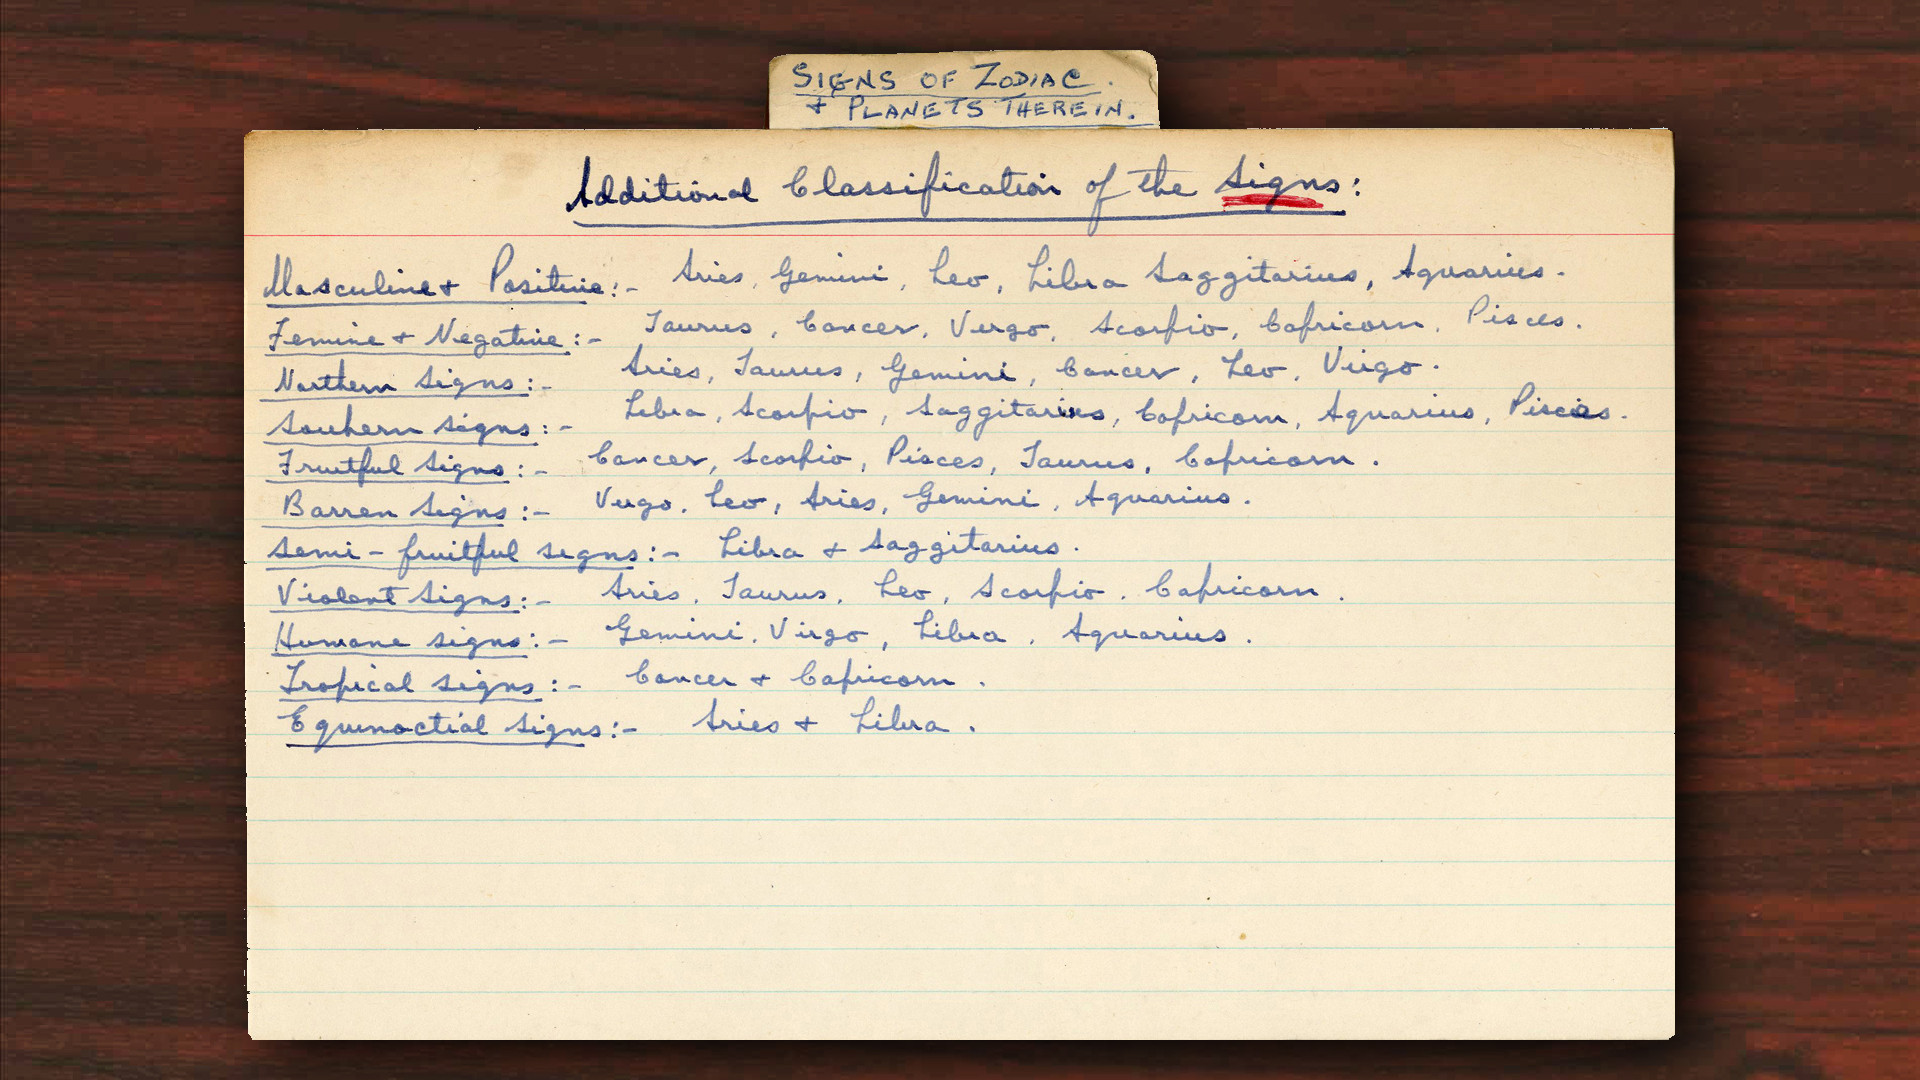 SIGNS OF ZODIAC.
+ PLANETS THEREIN.
Additional Classification of the Signs:
Masculine + Positive:- Aries, Gemini, Leo, Libra Saggitarius, Aquarius.
Femine + Negative:- Taurus, Cancer, Virgo, Scorpio, Capricorn, Pisces.
Northern Signs:- Aries, Taurus, Gemini, Cancer, Leo, Virgo.
Southern Signs:- Libra, Scorpio, Saggitarius, Capricorn, Aquarius, Pisces.
Fruitful Signs:- Cancer, Scorpio, Pisces, Taurus, Capricorn.
Barren Signs:- Virgo, Leo, Aries, Gemini, Aquarius.
Semi-fruitful signs:- Libra + Saggitarius.
Violent Signs:- Aries, Taurus, Leo, Scorpio, Capricorn.
Humane signs:- Gemini, Virgo, Libra, Aquarius.
Tropical signs:- Cancer + Capricorn.
Equinoctial Signs:- Aries + Libra.